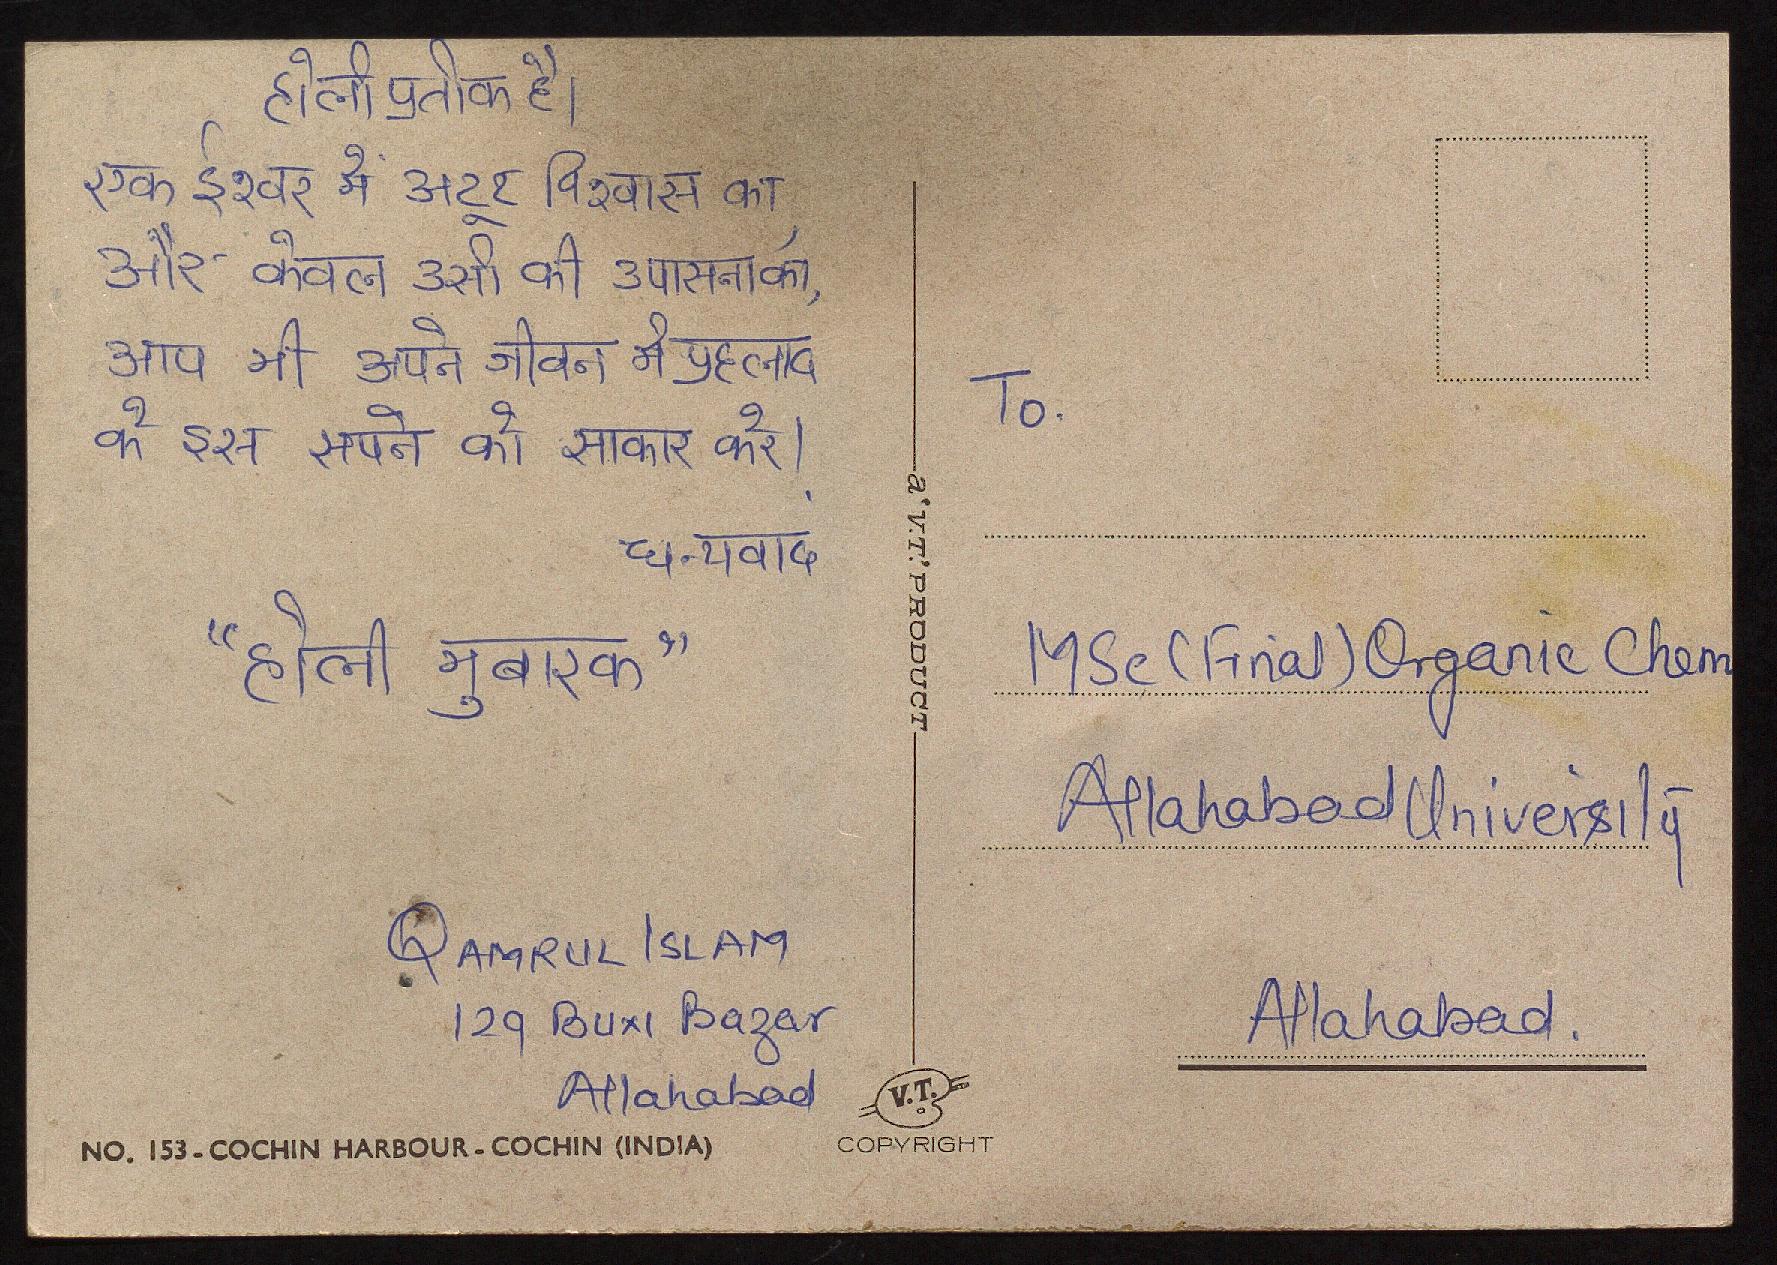 होली प्रतीक है।
एक ईश्वर में अटूट विश्वास का,
और केवल उसी की उपासना का,
आप भी अपने जीवन मे प्रहलाद
के इस सपने को साकार करे।
धन्यवाद
“होली मुबारक”
QAMRUL ISLAM
129 Buxi Bazar
Allahabad
NO. 153-COCHIN HARBOUR-COCHIN (INDIA)
a 'V.T.' PRODUCT
V.T.
COPYRIGHT
To.
MSc (Final) Organic Chem
Allahabad University
Allahabad.